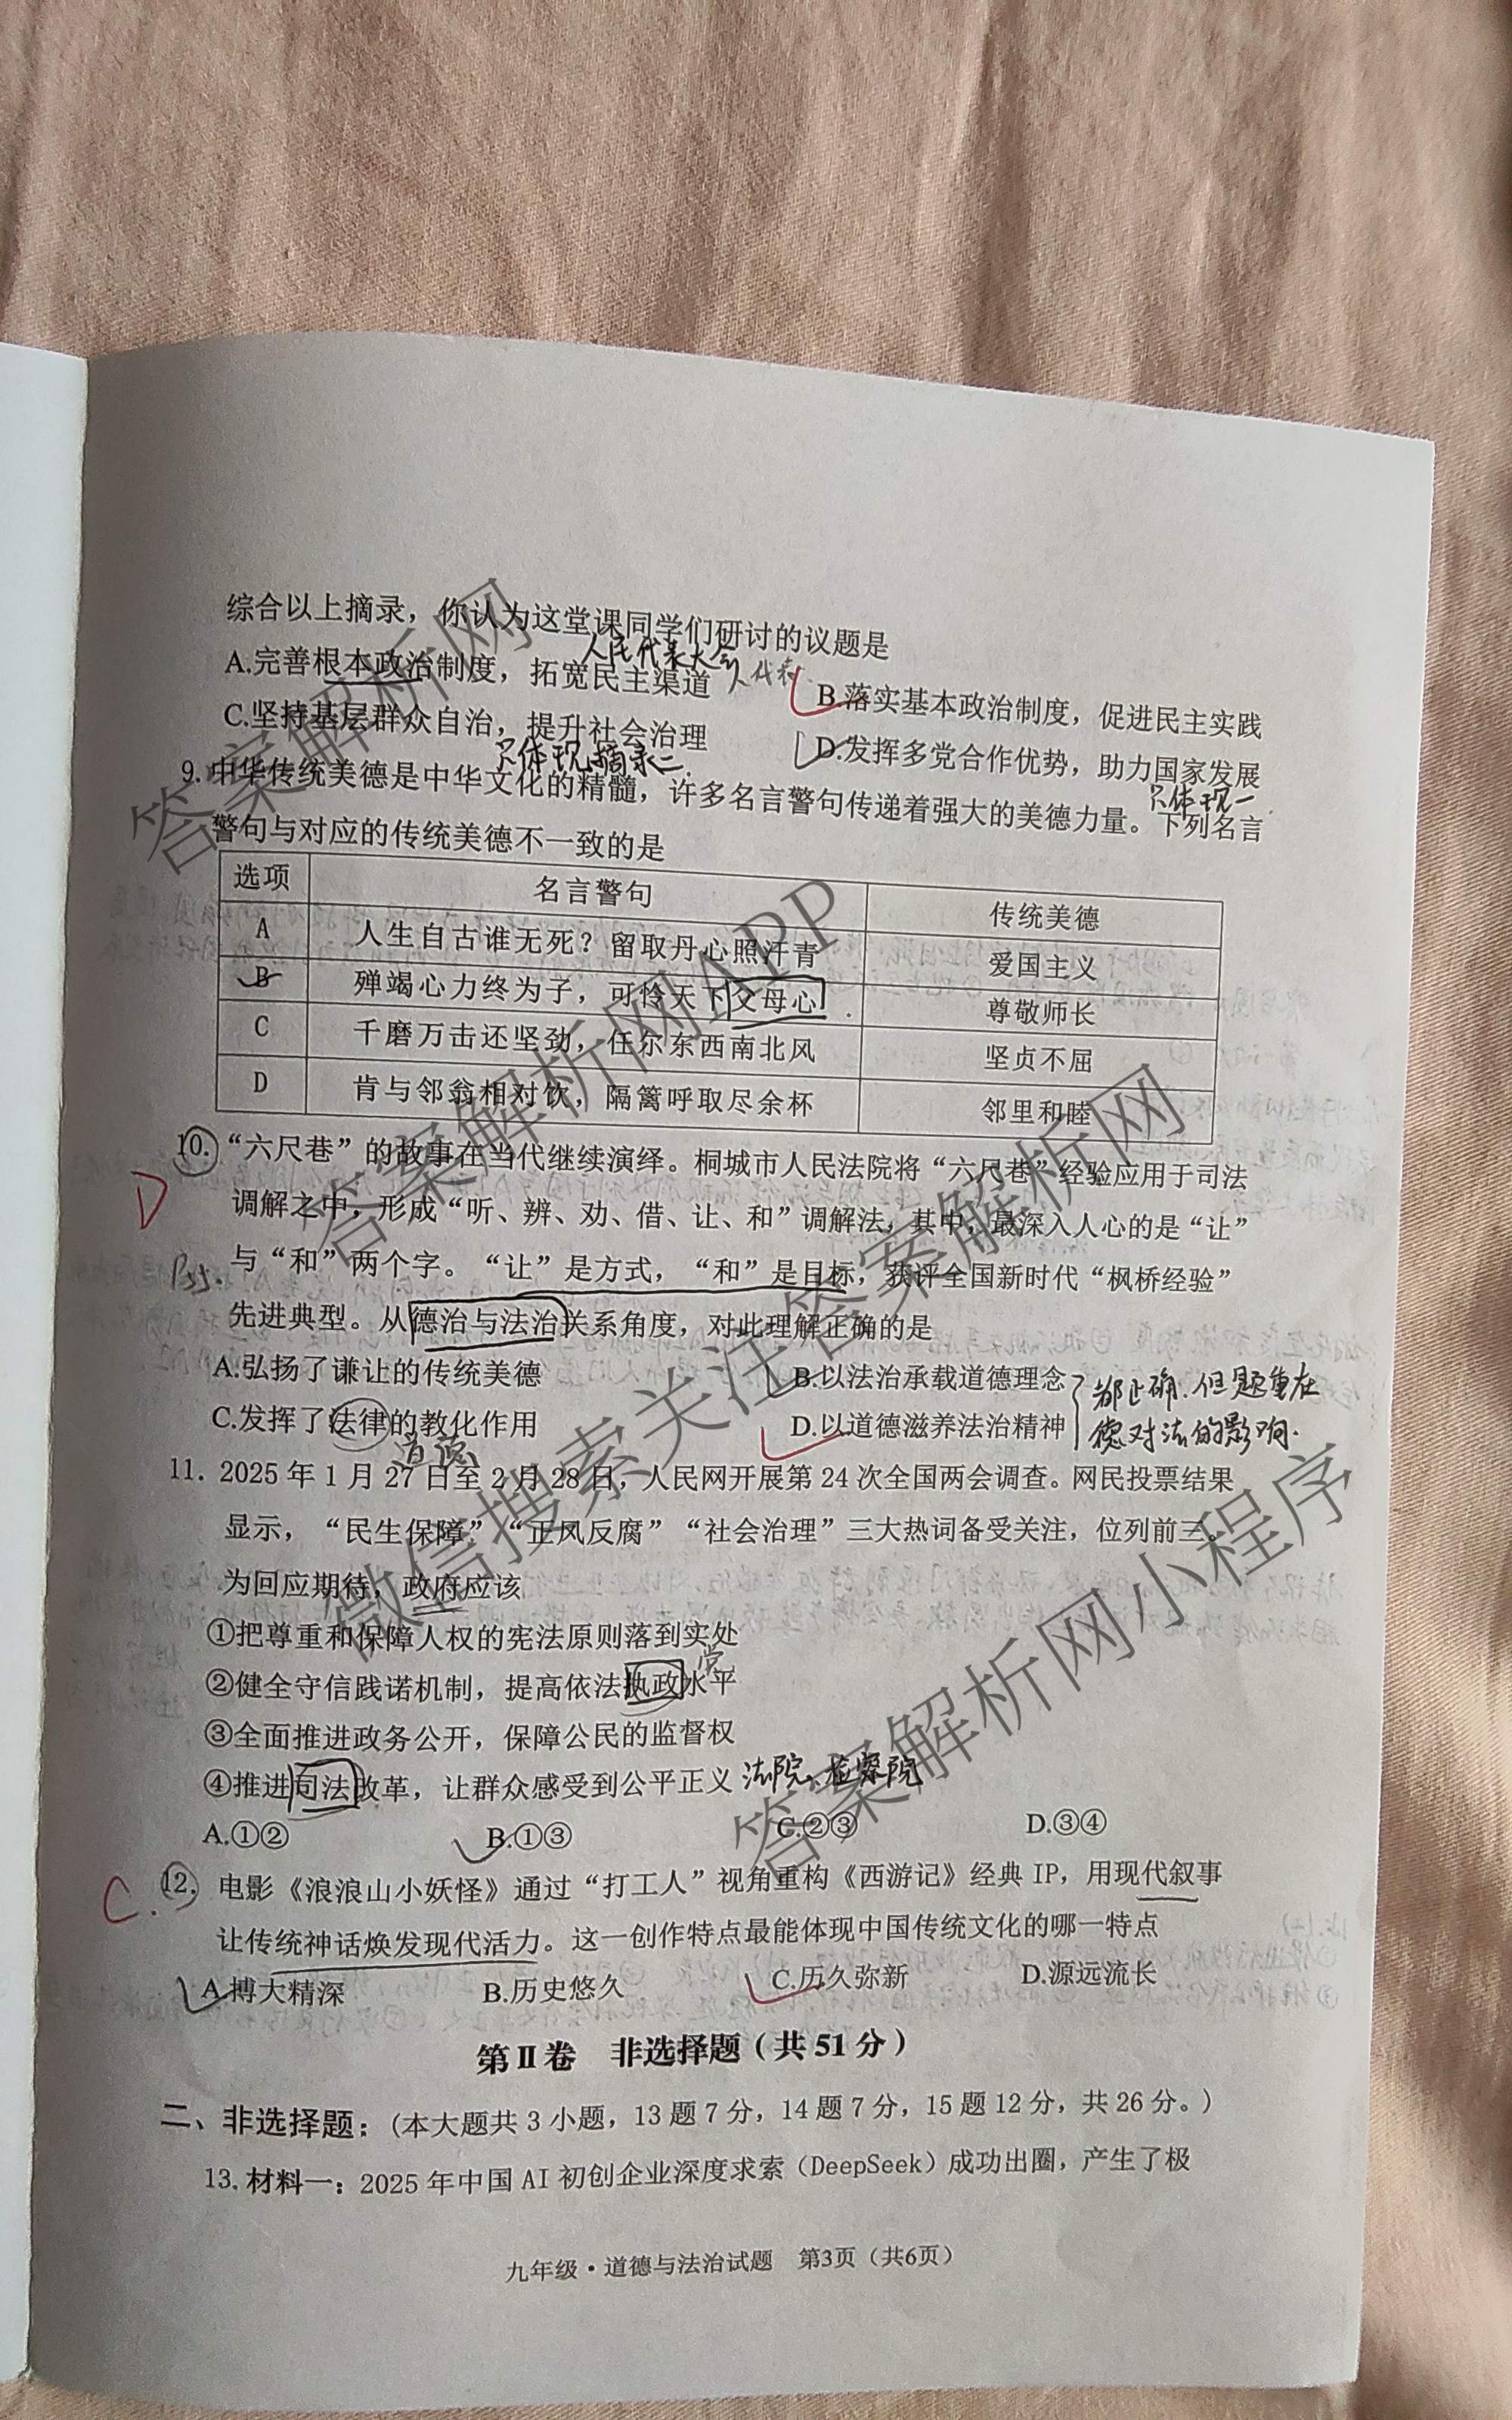 综合以上摘录，你认为这堂课同学们研讨的议题是
人民代表大会
A.完善根本政治制度，拓宽民主渠道 人代表
B.落实基本政治制度，促进民主实践
C.坚持基层群众自治，提升社会治理
D.发挥多党合作优势，助力国家发展
只体现摘录二.
只体现一.
9.中华传统美德是中华文化的精髓，许多名言警句传递着强大的美德力量。下列名言
警句与对应的传统美德不一致的是
选项 名言警句 传统美德
A 人生自古谁无死？留取丹心照汗青 爱国主义
B 殚竭心力终为子，可怜天下父母心 尊敬师长
C 千磨万击还坚劲，任尔东西南北风 坚贞不屈
D 肯与邻翁相对饮，隔篱呼取尽余杯 邻里和睦
10.“六尺巷”的故事在当代继续演绎。桐城市人民法院将“六尺巷”经验应用于司法
D
调解之中，形成“听、辨、劝、借、让、和”调解法，其中，最深入人心的是“让”
P55.
与“和”两个字。“让”是方式，“和”是目标，获评全国新时代“枫桥经验”
先进典型。从德治与法治关系角度，对此理解正确的是
A.弘扬了谦让的传统美德 B.以法治承载道德理念
C.发挥了法律的教化作用 D.以道德滋养法治精神
都正确.但题重在
德对法的影响.
道德
11. 2025年1月27日至2月28日，人民网开展第24次全国两会调查。网民投票结果
显示，“民生保障”“正风反腐”“社会治理”三大热词备受关注，位列前三。
为回应期待，政府应该
①把尊重和保障人权的宪法原则落到实处
党.
②健全守信践诺机制，提高依法执政水平
③全面推进政务公开，保障公民的监督权
④推进司法改革，让群众感受到公平正义 法院、检察院
A.①② B.①③ C.②③ D.③④
C.
12. 电影《浪浪山小妖怪》通过“打工人”视角重构《西游记》经典 IP，用现代叙事
让传统神话焕发现代活力。这一创作特点最能体现中国传统文化的哪一特点
A.博大精深 B.历史悠久 C.历久弥新 D.源远流长
第Ⅱ卷 非选择题（共51分）
二、非选择题：(本大题共3小题，13题7分，14题7分，15题12分，共26分。)
13.材料一：2025年中国AI初创企业深度求索（DeepSeek）成功出圈，产生了极
九年级·道德与法治试题 第3页（共6页）
答案解析网
答案解析网APP
微信搜索关注答案解析网
答案解析网小程序